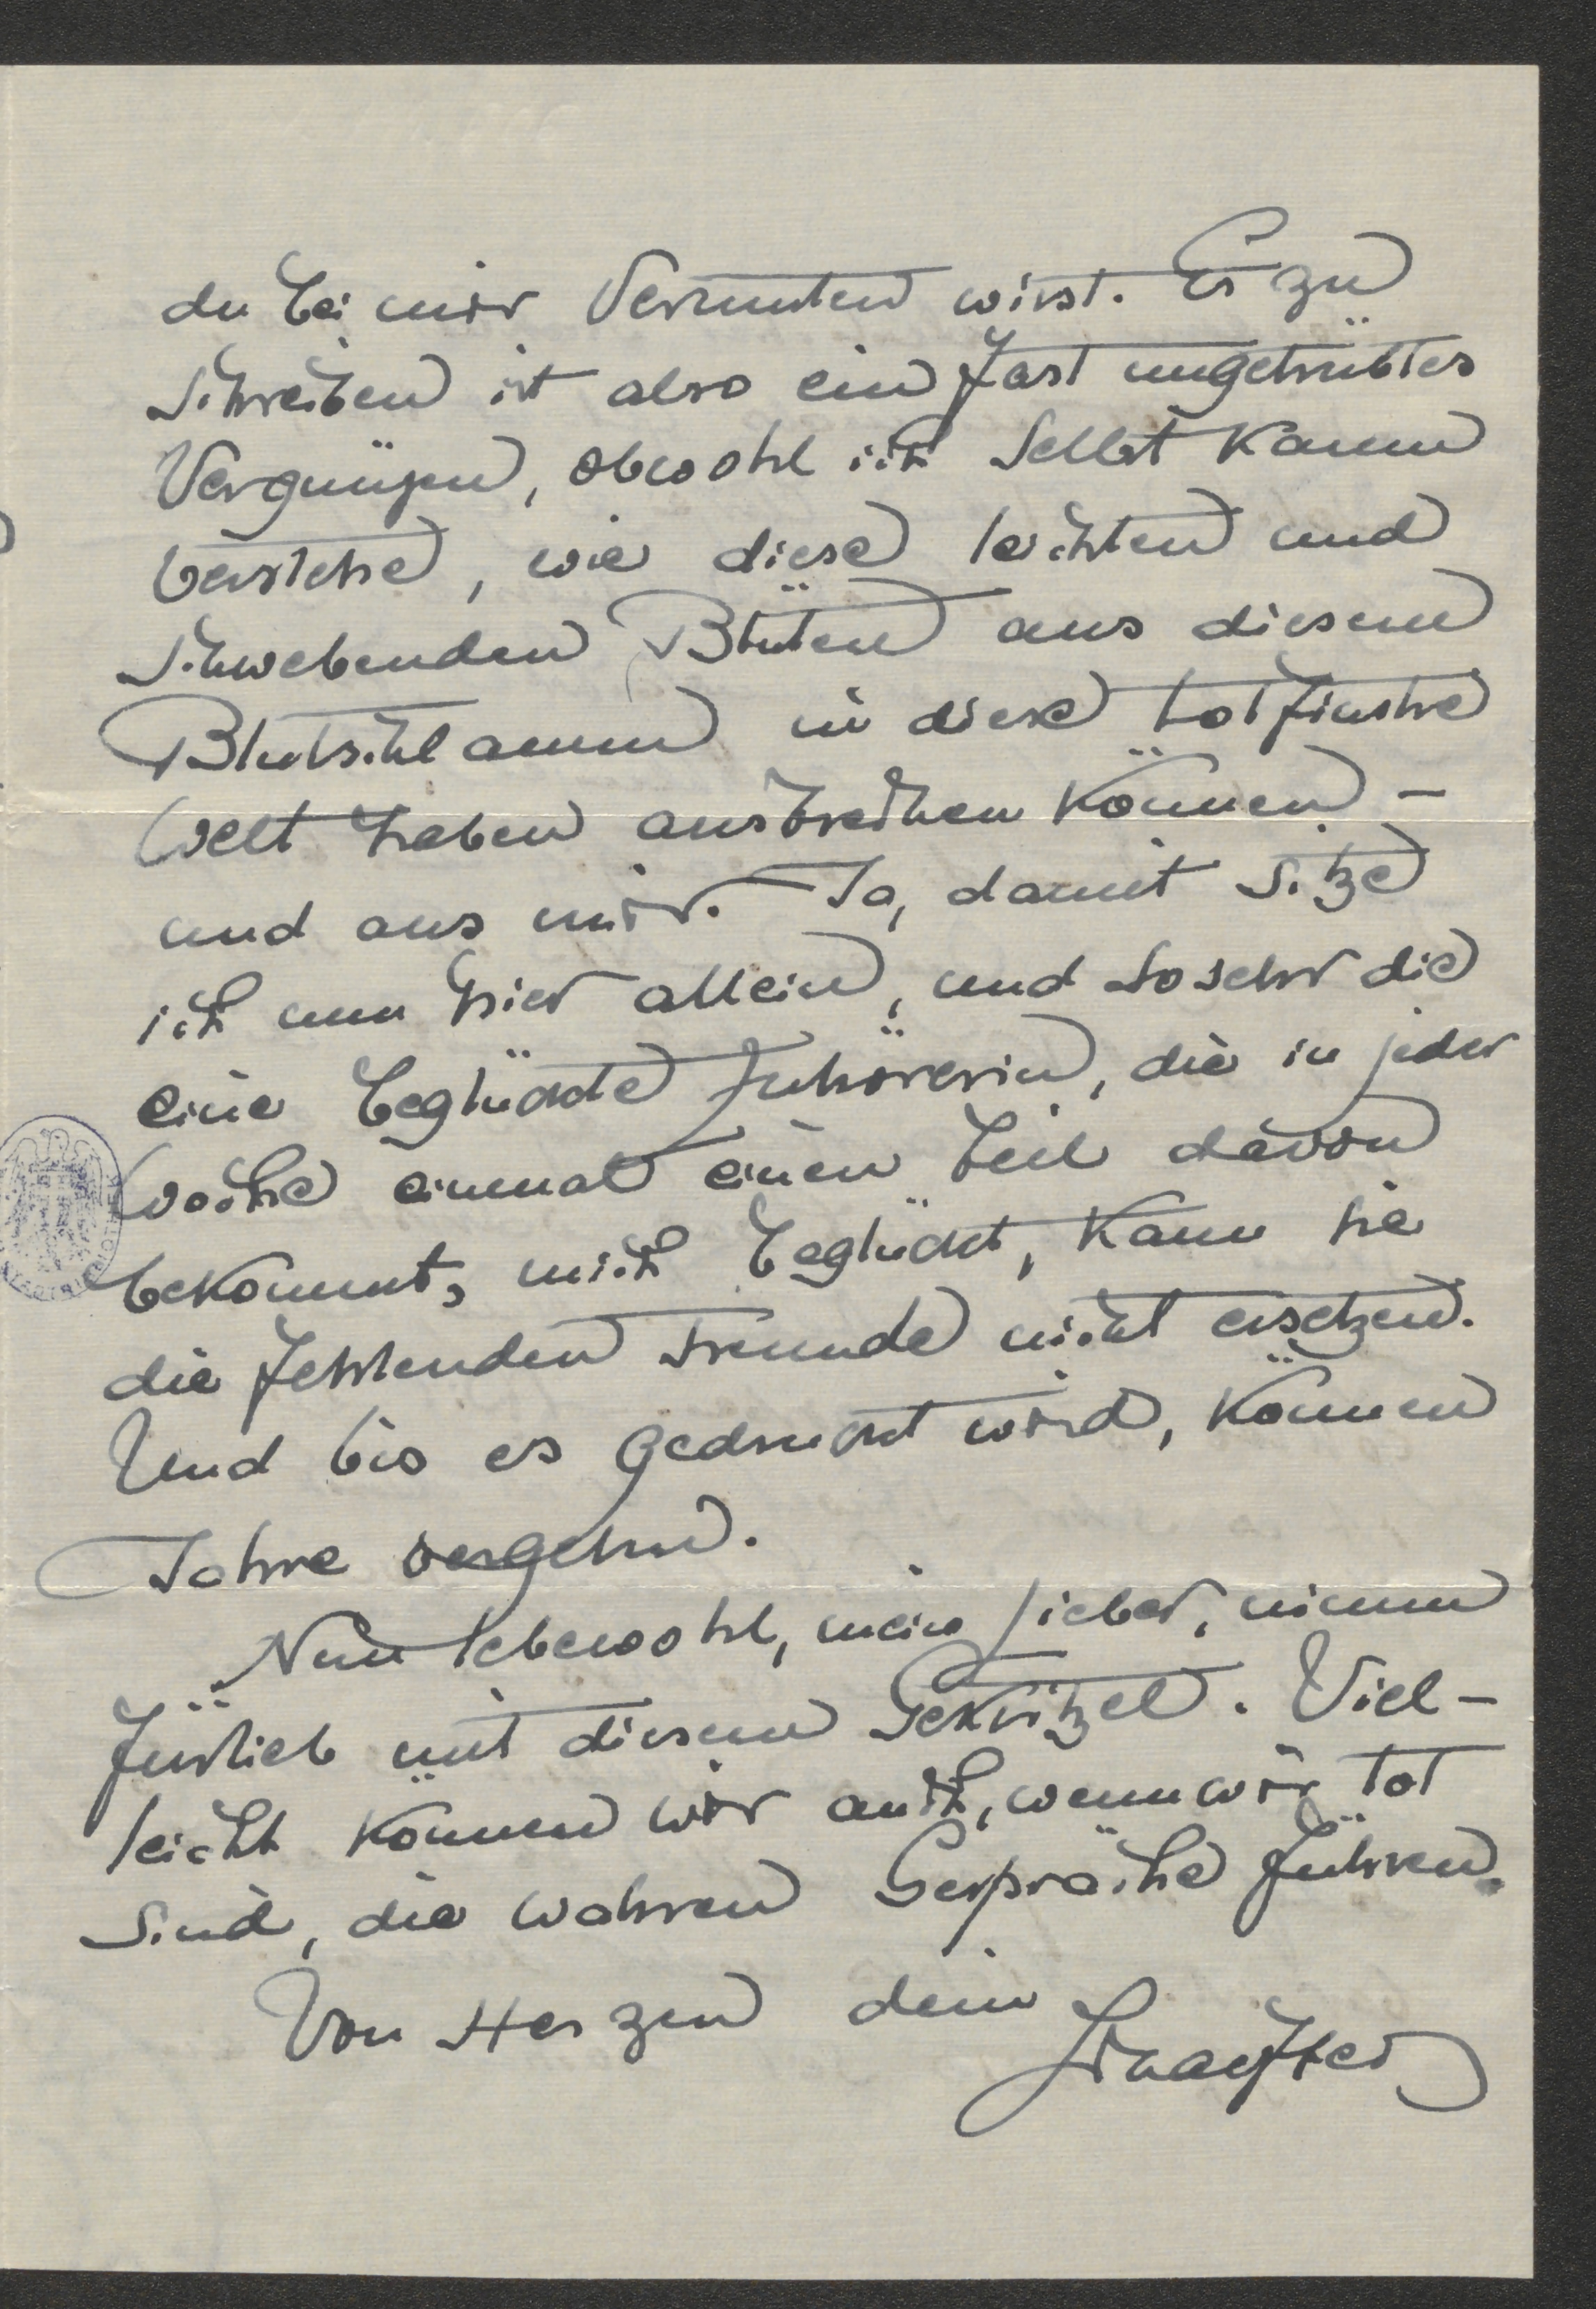 du bei mir vermuten wirst. Es zu
schreiben ist also ein fast ungetrübtes
Vergnügen, obwohl ich selbst kaum
verstehe, wie diese leichten und
schwebenden Blüten aus diesem
Blutschlamm in diese totfinstre
Welt haben ausbrechen können –
und aus mir. Ja, damit sitze
ich nun hier allein, und so sehr die
eine beglückte Zuhörerin, die in jeder
Woche einmal einen Teil davon
bekommt, mich beglückt, kann sie
die fehlenden Freunde nicht ersetzen.
Und bis es gedruckt wird, können
Jahre vergehn.
Nun lebewohl, mein Lieber, nimm
fürlieb mit diesem Gekritzel. Viel-
leicht können wir auch, wenn wir tot
sind, die wahren Gespräche führen.
Von Herzen dein
Schaeffer